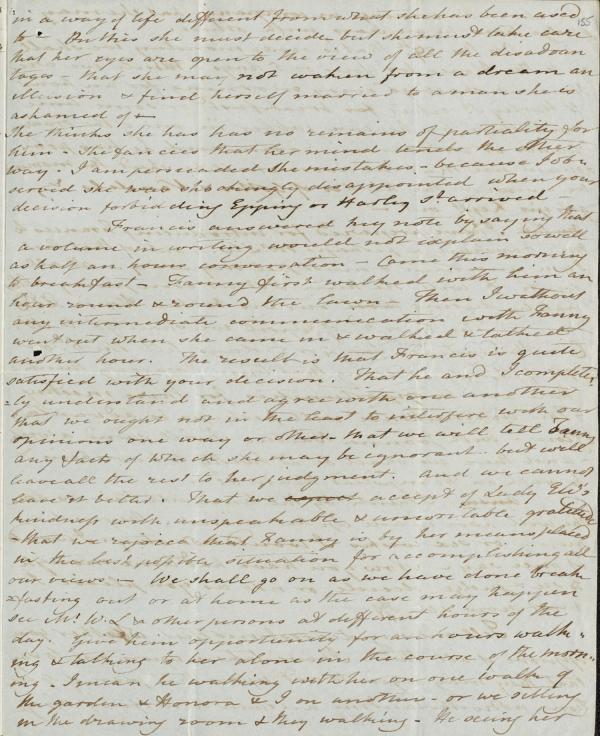 in a way of life different from what she has been used
155
to – On this she must decide but she must take care
that her eyes are open to the view of all the disadvan
tages – that she may not waken from a dream an
illusion & find herself married to a man she is
ashamed of –
She thinks she has has no remains of partiality for
him – She fancies that her mind tends the other
way – I am persuaded she mistakes – because I ob-
servd she was shockingly disappointed when your
decision forbidding Epping or Harley St arrived
Francis answered my note by saying that
a volume in writing would not explain so well
as half an hours conversation – Came this morning
to breakfast – Fanny first walked with him an
hour round & round the lawn – Then I without
any intermediate communication with Fanny
went out when she came in & walked & talked
another hour. The result is that Francis is quite
satisfied with your decision. That he and I complete
-ly understand and agree with one another
that we ought not in the least to interfere with our
opinions one way or other – that we will tell Fanny
any facts of which she may be ignorant but will
leave all the rest to her judgment. And we cannot
leave it better. That we accept of Lady Eli's
kindness with unspeakable & unwritable gratitude
– that we rejoice that Fanny is by her means placed
in the best possible situation for accomplishing all
our views – We shall go on as we have done break
-fasting out or at home as the case may happen
see Mr. W. L & other persons at different hours of the
day. Give him opportunity for an hours walk-
ing & talking to her alone in the course of the morn-
ing – I mean he walking with her on one walk of
the garden & Honora & I on another – or we sitting
in the drawing room & they walking – He seeing her